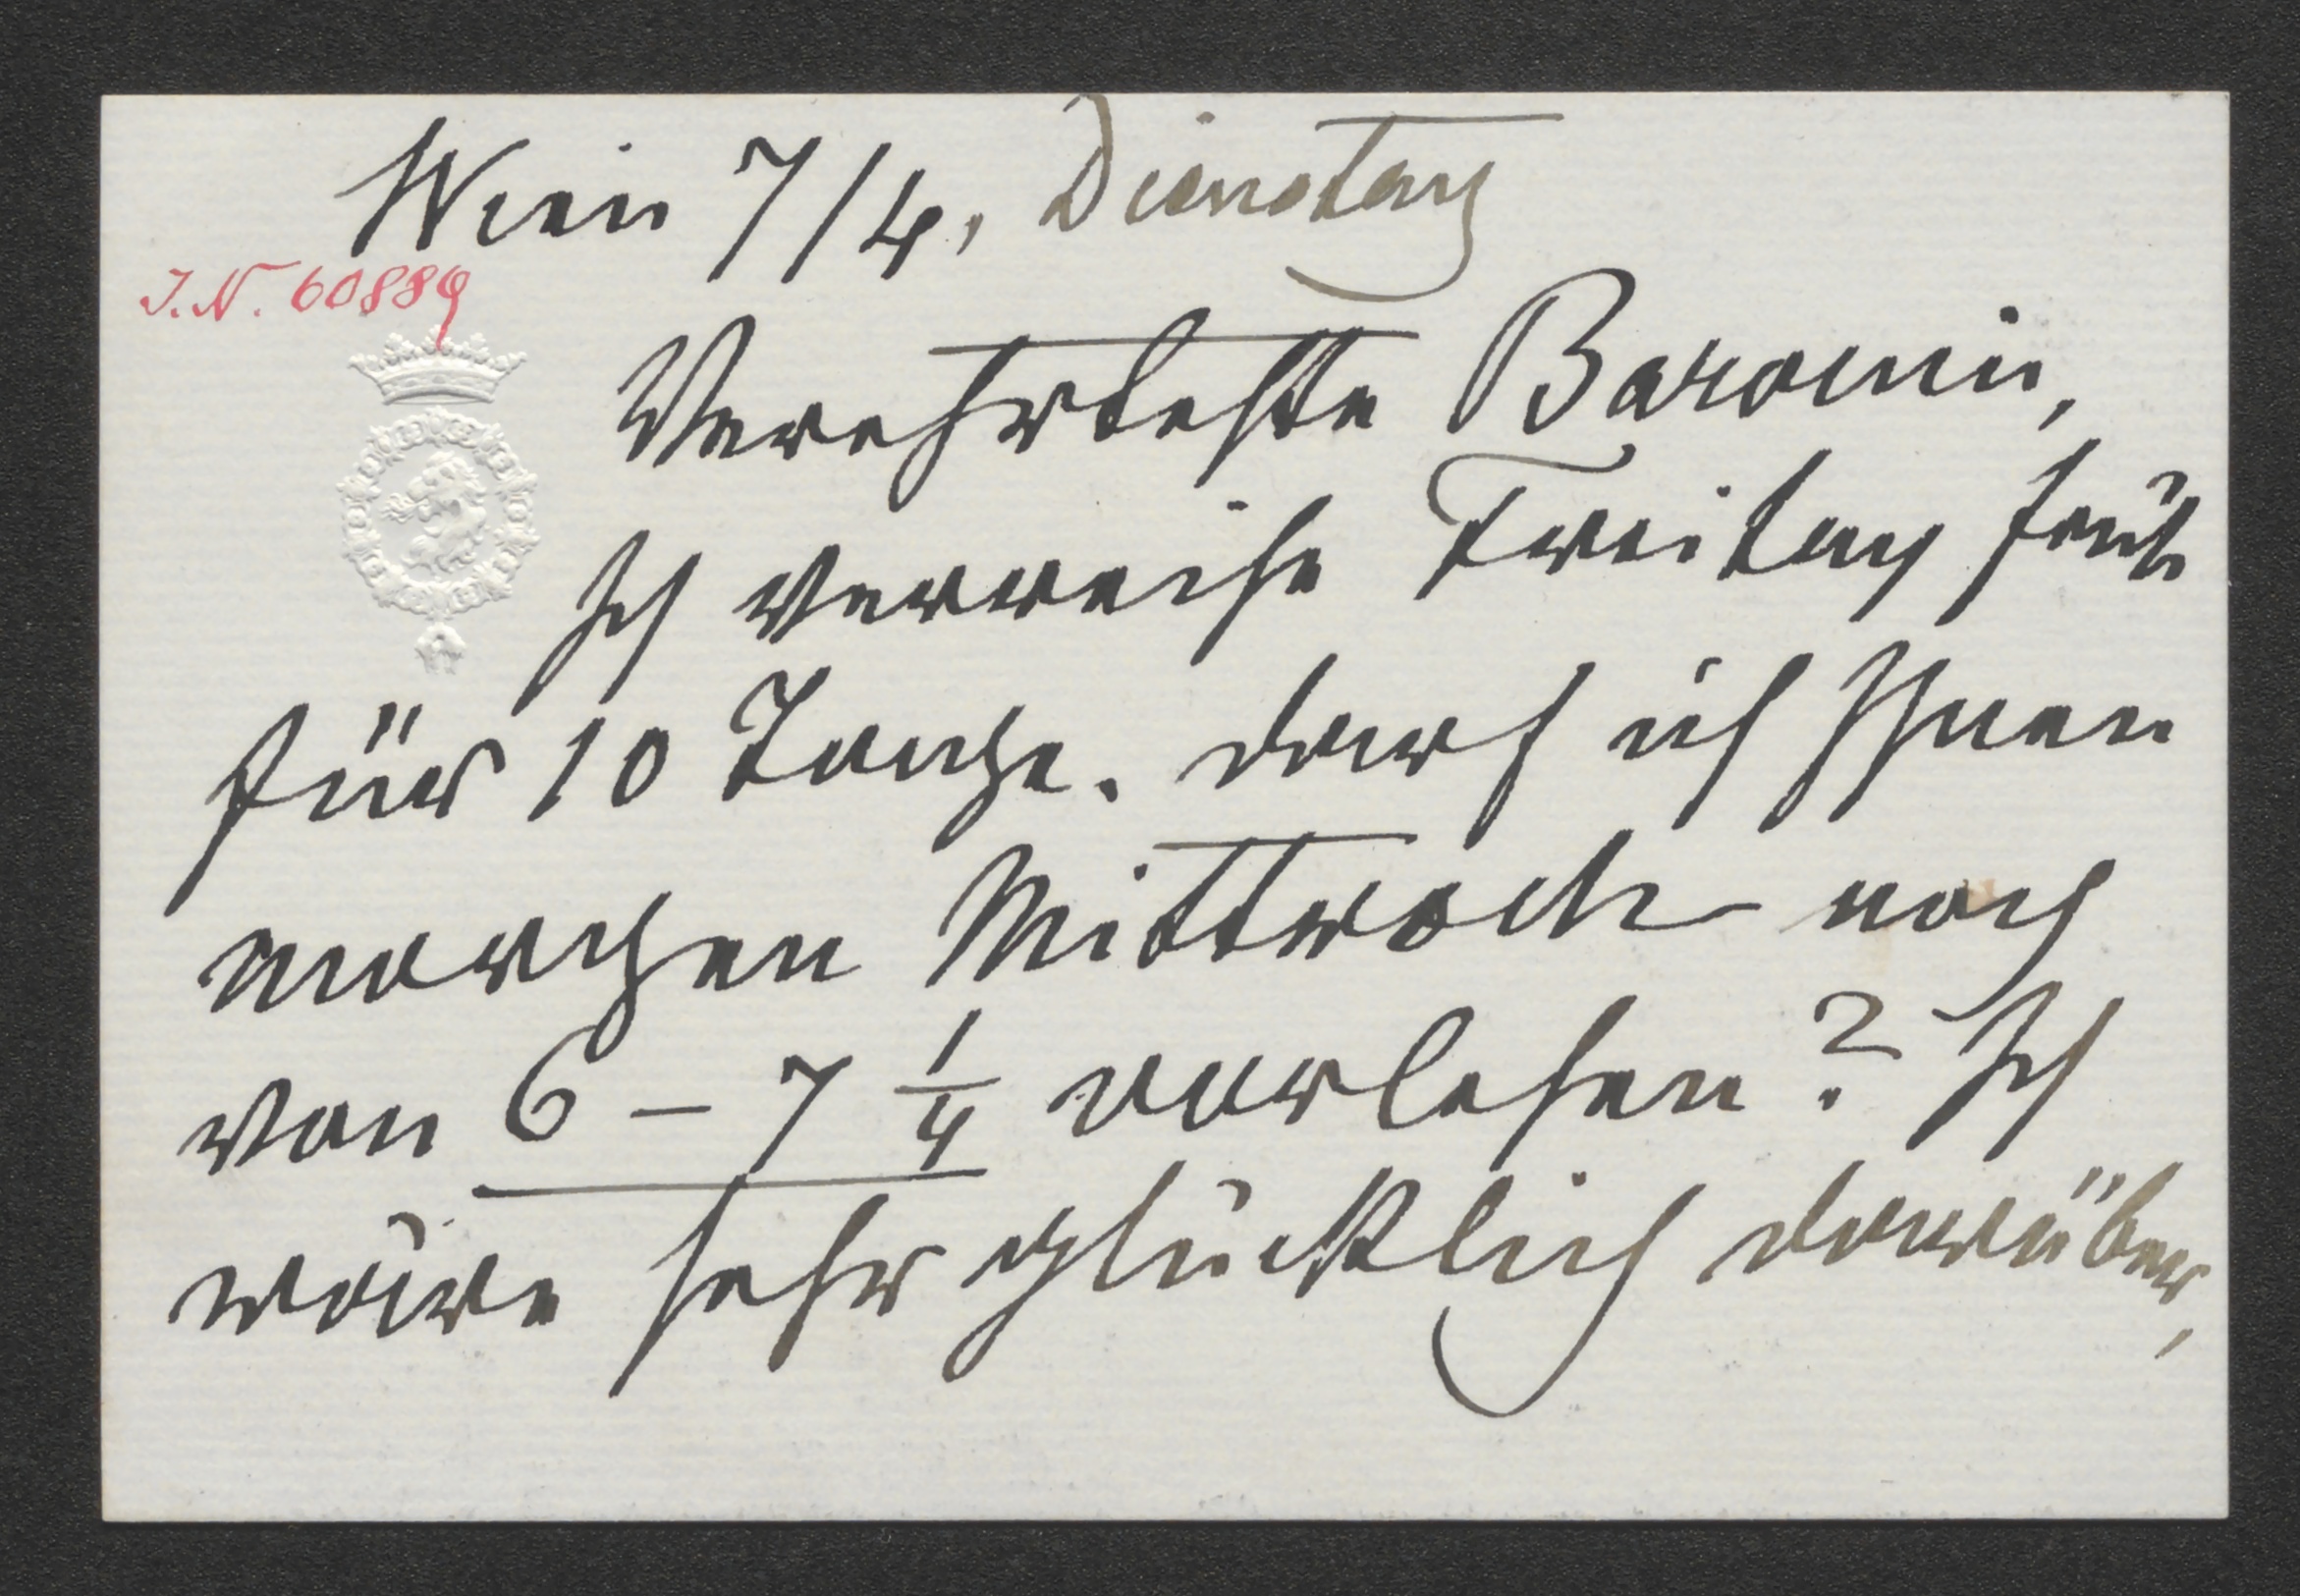 Wien 7/4, Dienstag
J.N. 60889
Verehrteste Baronin,
Ich verreise Freitag früh
für 10 Tage. Darf ich Ihnen
morgen Mittwoch noch
von 6 – 7 1/4 vorlesen? Ich
wäre sehr glücklich darüber,